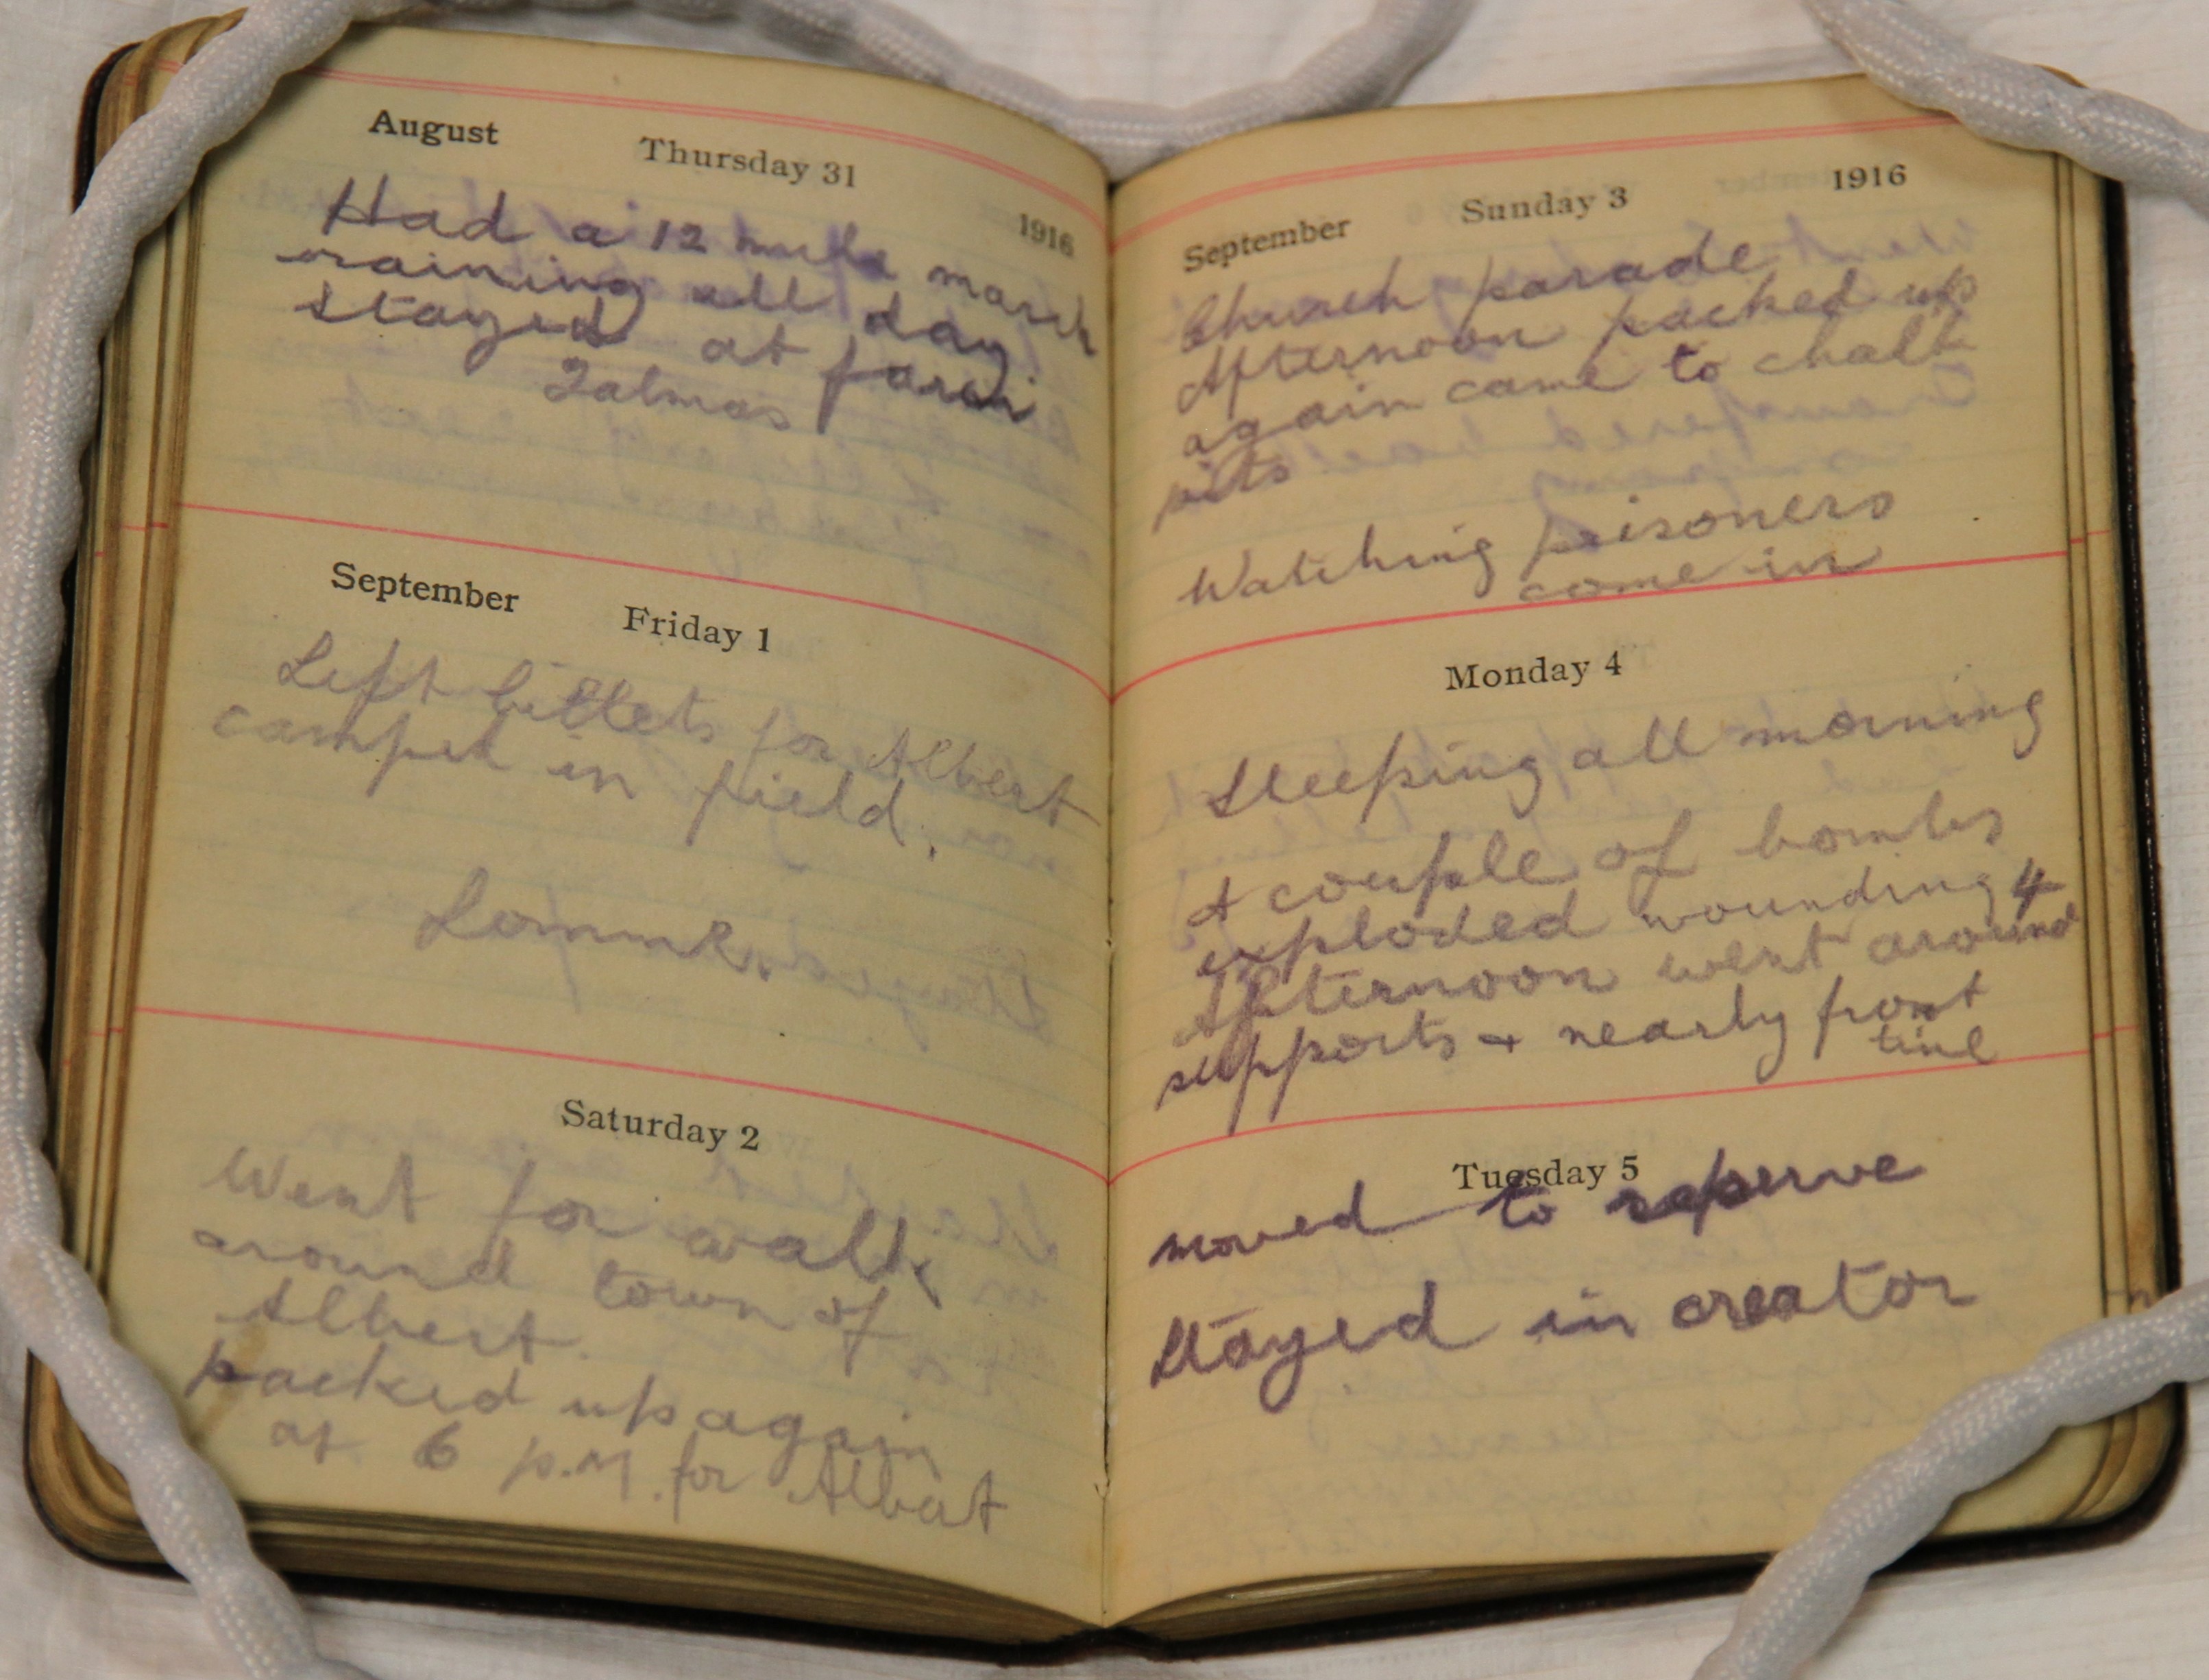 August Thursday 31 1916
Had a 12 mile march
raining all day
stayed at farm
Talmas
September Friday 1
Left billets for Albert
camped in field.
Saturday 2
Went for walk
around town of
Albert.
packed up again
at 6 p.m. for Albat
September Sunday 3 1916
Church parade
Afternoon packed up
again came to chalk
pits
Watching prisoners
come in
Monday 4
Sleeping all morning
A couple of bombs
exploded wounding 4
Afternoon went around
supports + nearly front
line
Tuesday 5
moved to reserve
Stayed in creator